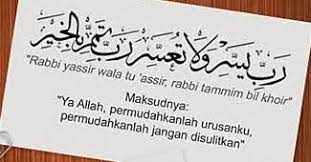 رَبِّ يَسِّرْ وَلَا تُعَسِّرْ رَبِّ تَمِّمْ بِالْخَيْرِ
"Rabbi yassir wala tu 'assir, rabbi tammim bil khoir"
Maksudnya:
"Ya Allah, permudahkanlah urusanku,
permudahkanlah jangan disulitkan"